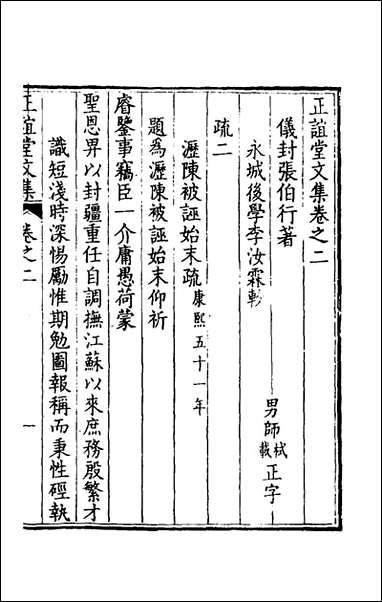 正誼堂文集卷之二
儀封張伯行著
永城後學李汝霖較
男師栻載正字
疏二
瀝陳被誣始末疏康熙五十一年
題為瀝陳被誣始末仰祈
睿鑒事竊臣一介庸愚荷蒙
聖恩畀以封疆重任自調撫江蘇以來庶務殷繁才
識短淺時深惕勵惟期勉圖報稱而秉性硜執
正誼堂文集
卷之二
一